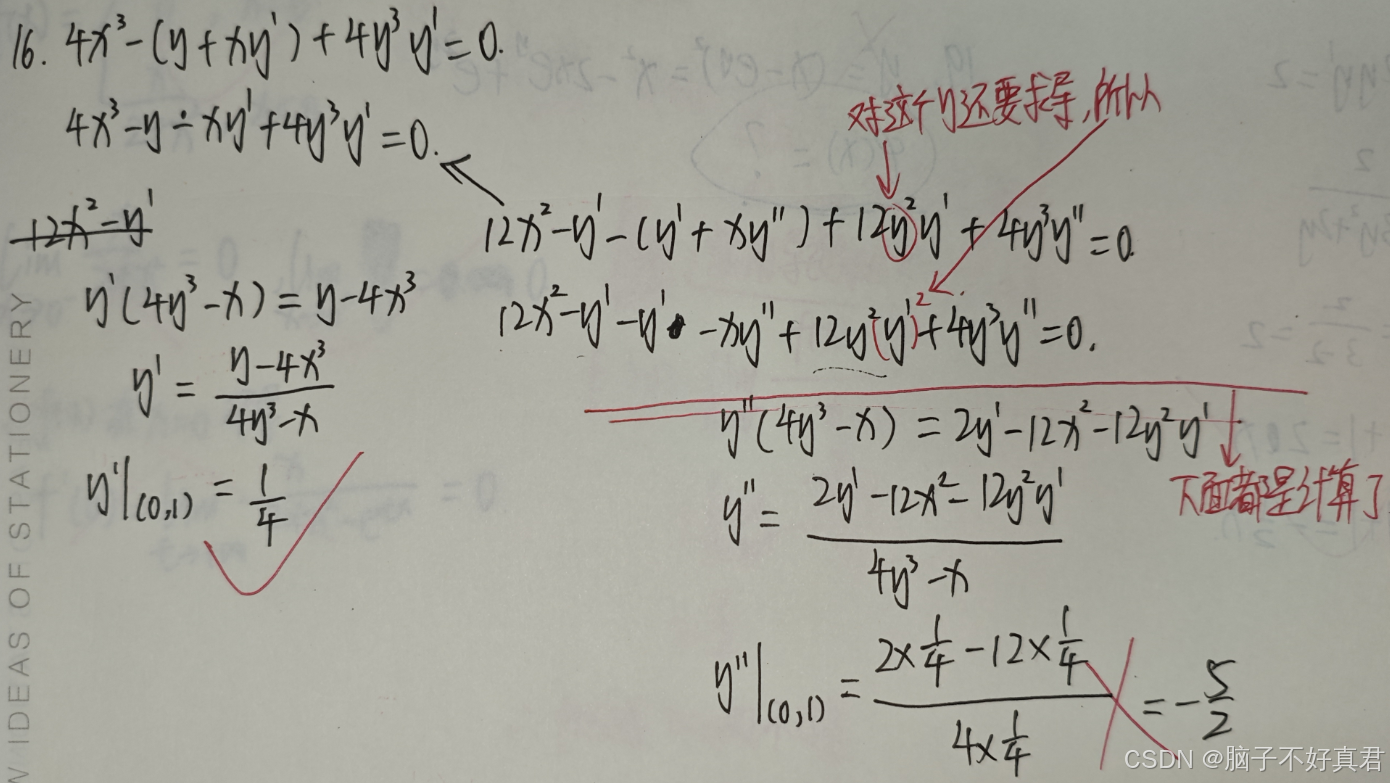 16. 4x³-(y+xy')+4y³y'=0.
4x³-y-xy'+4y³y'=0.
12x²-y'
y'(4y³-x)=y-4x³
y'=\frac{y-4x³}{4y³-x}
y'|(0,1)=\frac{1}{4}
对这个y还要求导,所以
12x²-y'-(y'+xy'')+12y²y'+4y³y''=0.
12x²-y'-y'-xy''+12y²(y')²+4y³y''=0.
y''(4y³-x)=2y'-12x²-12y²y'
下面都是计算了
y''=\frac{2y'-12x²-12y²y'}{4y³-x}
y''|(0,1)=\frac{2×\frac{1}{4}-12×\frac{1}{4}}{4×\frac{1}{4}}=-\frac{5}{2}
IDEAS OF STATIONERY
CSDN @脑子不好真君